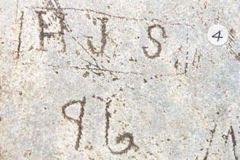 HJS
4
96